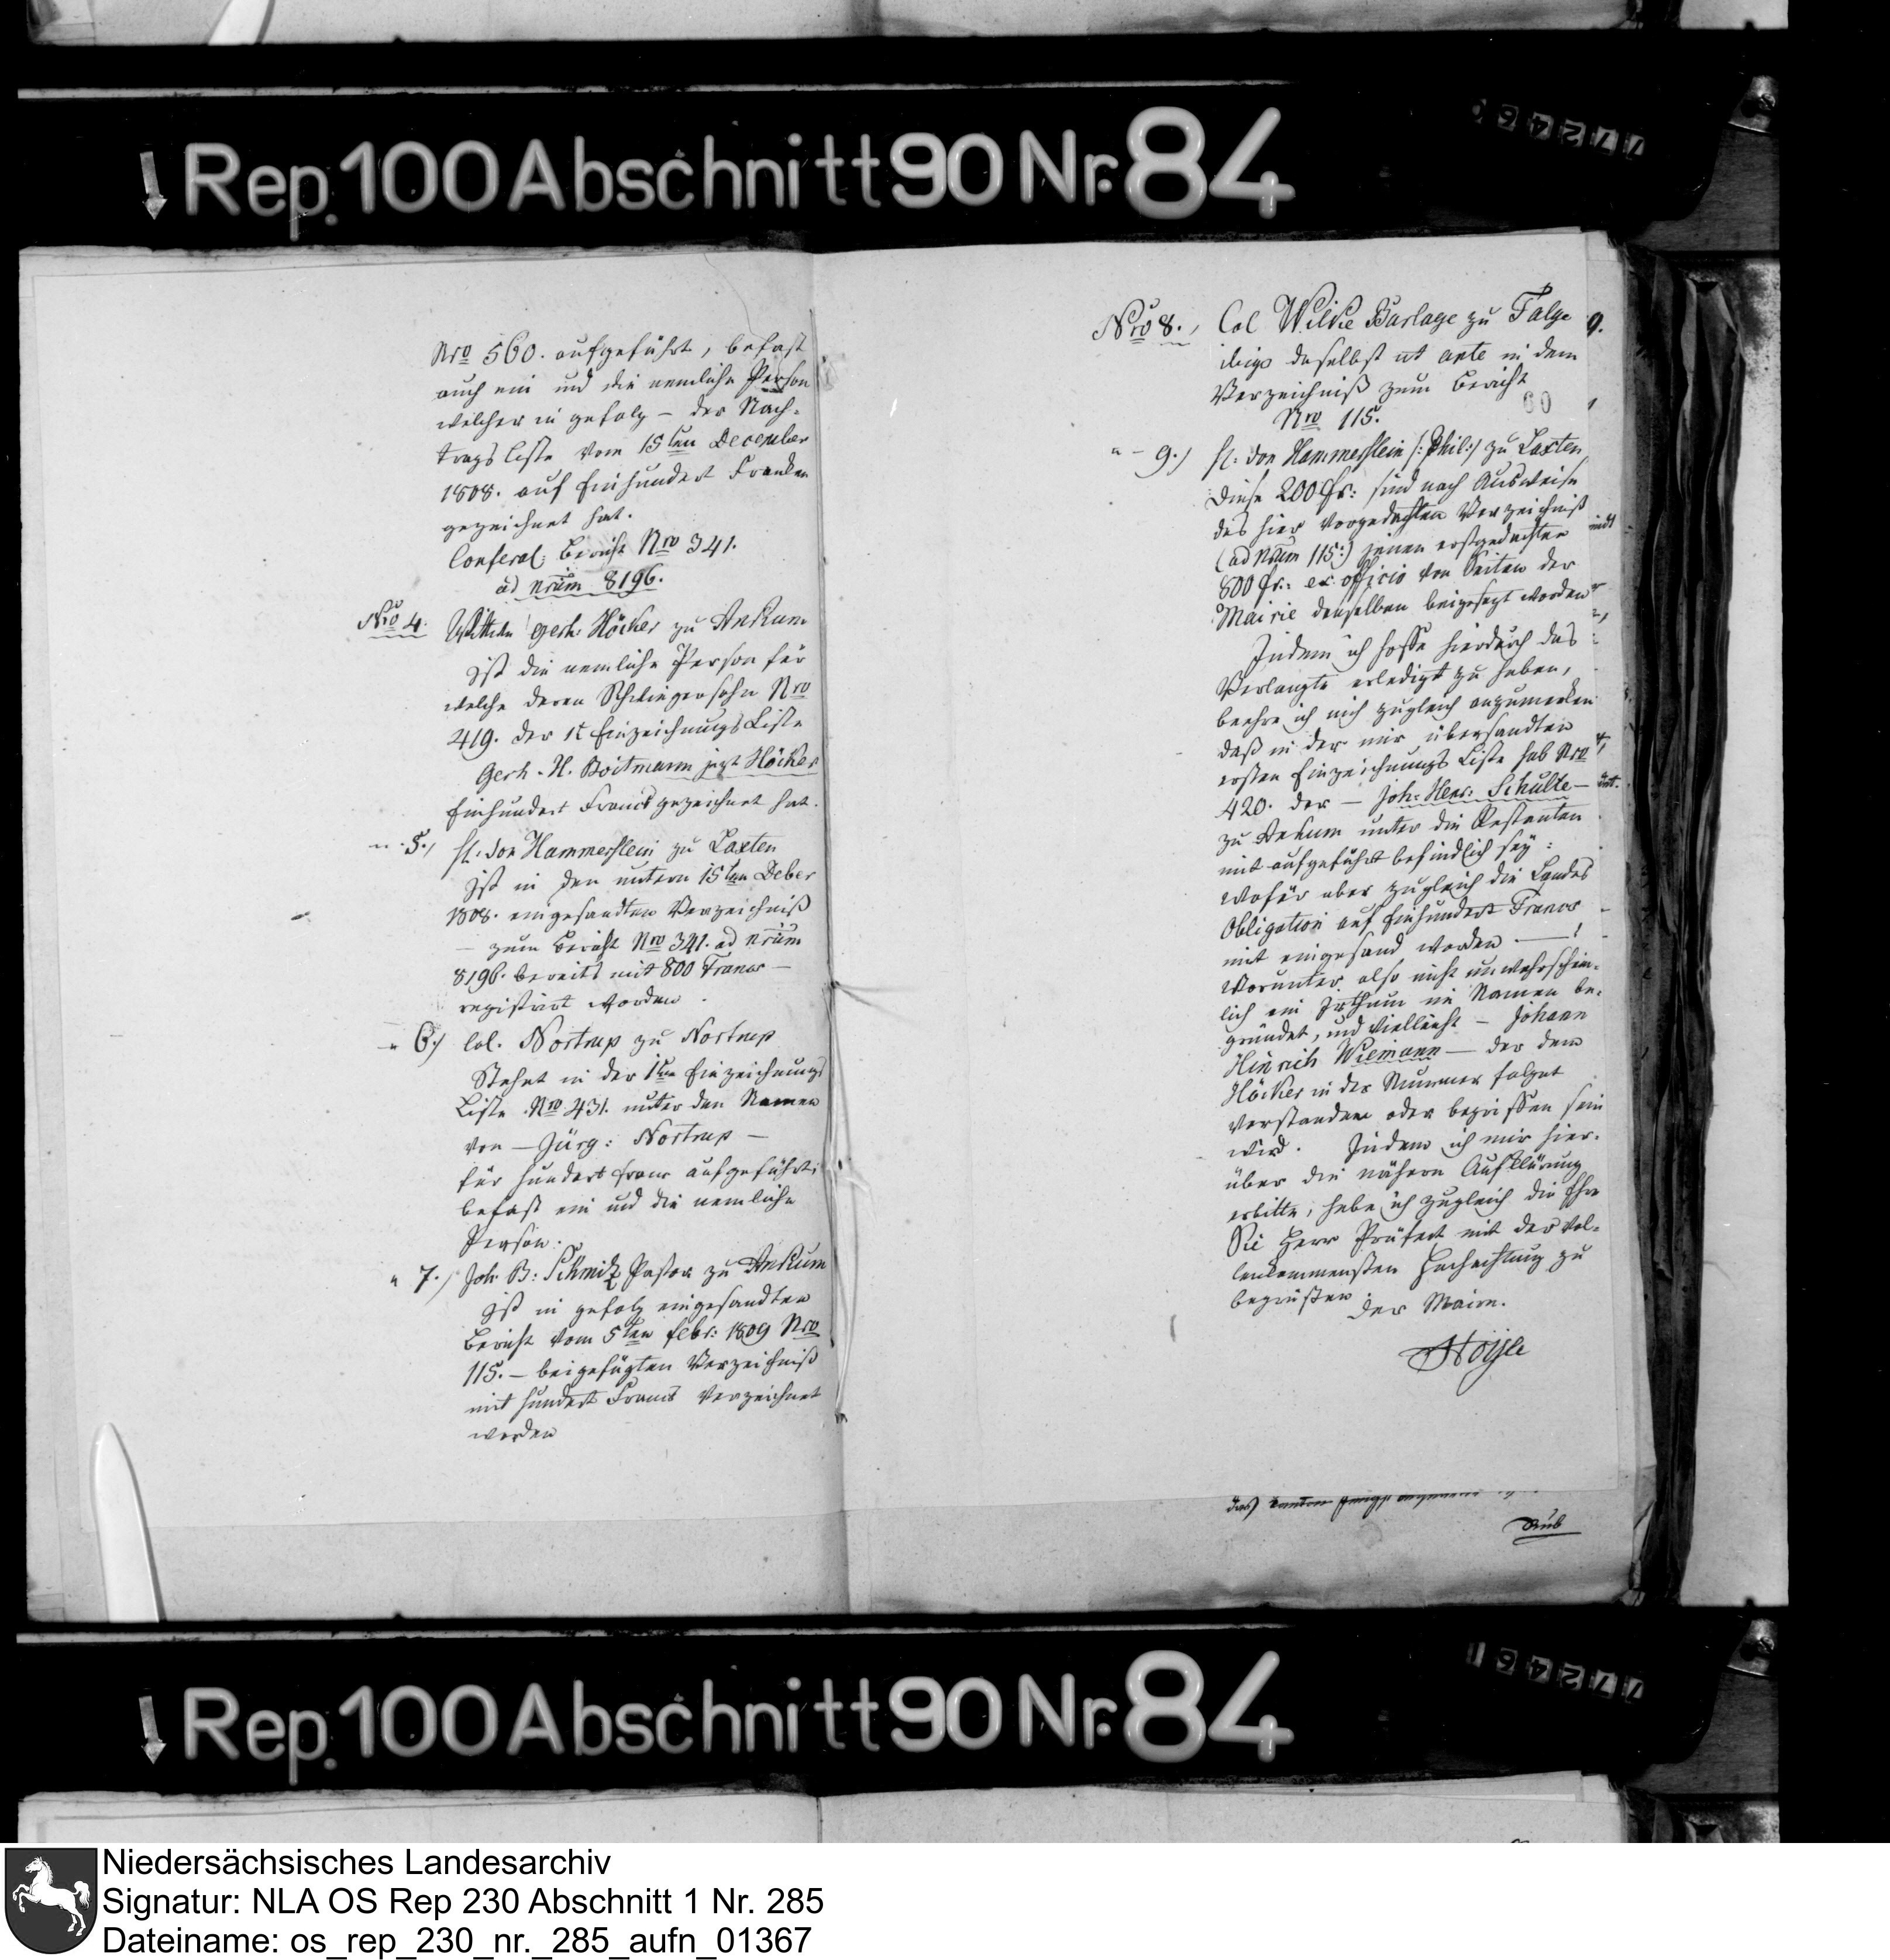 Rep. 100 Abschnitt 90 Nr. 84
Nro 560. aufgeführt, befast
auch ein und die nemliche Person
welcher in gefolg – der Nach-
trags Liste vom 15ten December
1808. auf Einhundert Franken
gezeichnet hat.
Conferat: Bericht Nro 341.
ad Nrum 8196.
Nro 4. Wittwe Gerh: Höcker zu Ankum
Ist die nemliche Person für
welche deren Schwiegersohn Nro
419. der 1t Einzeichnungs Liste
Gerh. H. Boitmann jezt Höcker
Einhundert Francs gezeichnet hat.
" 5., H. von Hammerstein zu Laxten
Ist in den unterm 15ten Deber
1808. eingesandten Verzeichniß
– zum Bericht Nro 341. ad Nrum
8196. bereits mit 800 Francs –
registrirt worden.
" 6.) Col. Nortrup zu Nortrup
Stehet in der 1ten Einzeichnungs
Liste Nro 431. unter den Namen
von – Jürg: Nortrup –
für hundert franc aufgeführt;
befast ein und die nemliche
Person.
" 7.) Joh. B: Schmitz Pastor zu Ankum
Ist in gefolg eingesandten
Bericht vom 5ten febr: 1809 Nro
115. – beigefügten Verzeichniß
mit hundert Francs Verzeichnet
worden
Nro 8., Col Wilke Barlage zu Talge
daselbst ut ante in dem
Verzeichniß zum Bericht
60
Nro 115.
" – 9.) H. von Hammerstein /: Phil:/ zu Laxten
Diese 200 Fr: sind nach Ausweise
des hier vorgedachten Verzeichniß
(ad Nrum 115:) jenen erstgedachten
800 fr: ex officio von Seiten der
Mairie denselben beigesezt worden
Indem ich hoffe hierdurch das
Verlangte erledigt zu haben,
beehre ich mich zugleich anzumerken
daß in der mir übersandten
ersten Einzeichnungs Liste sub Nro
420. der – Joh: Henr: Schulte –
zu Ankum unter die Restanten
mit aufgeführt befindlich sey:
wofür aber zugleich die Landes
Obligation auf Einhundert Francs
mit eingesand worden – !
Worunter also nicht unwahrschein-
lich ein Irthum im Namen be-
gründet, und vielleicht – Johann
Hinrich Wiemann – der dem
Höcker in der Nummer folget
verstanden oder begriffen sein
wird. Indem ich mir hier-
über die nähere Aufklärung
erbitte, habe ich zugleich die Ehre
Sie Herr Präfect mit der vol-
lenkommensten Hochachtung zu
begrüßen
der Maire.
Rep. 100 Abschnitt 90 Nr. 84
Niedersächsisches Landesarchiv
Signatur: NLA OS Rep 230 Abschnitt 1 Nr. 285
Dateiname: os_rep_230_nr._285_aufn_01367